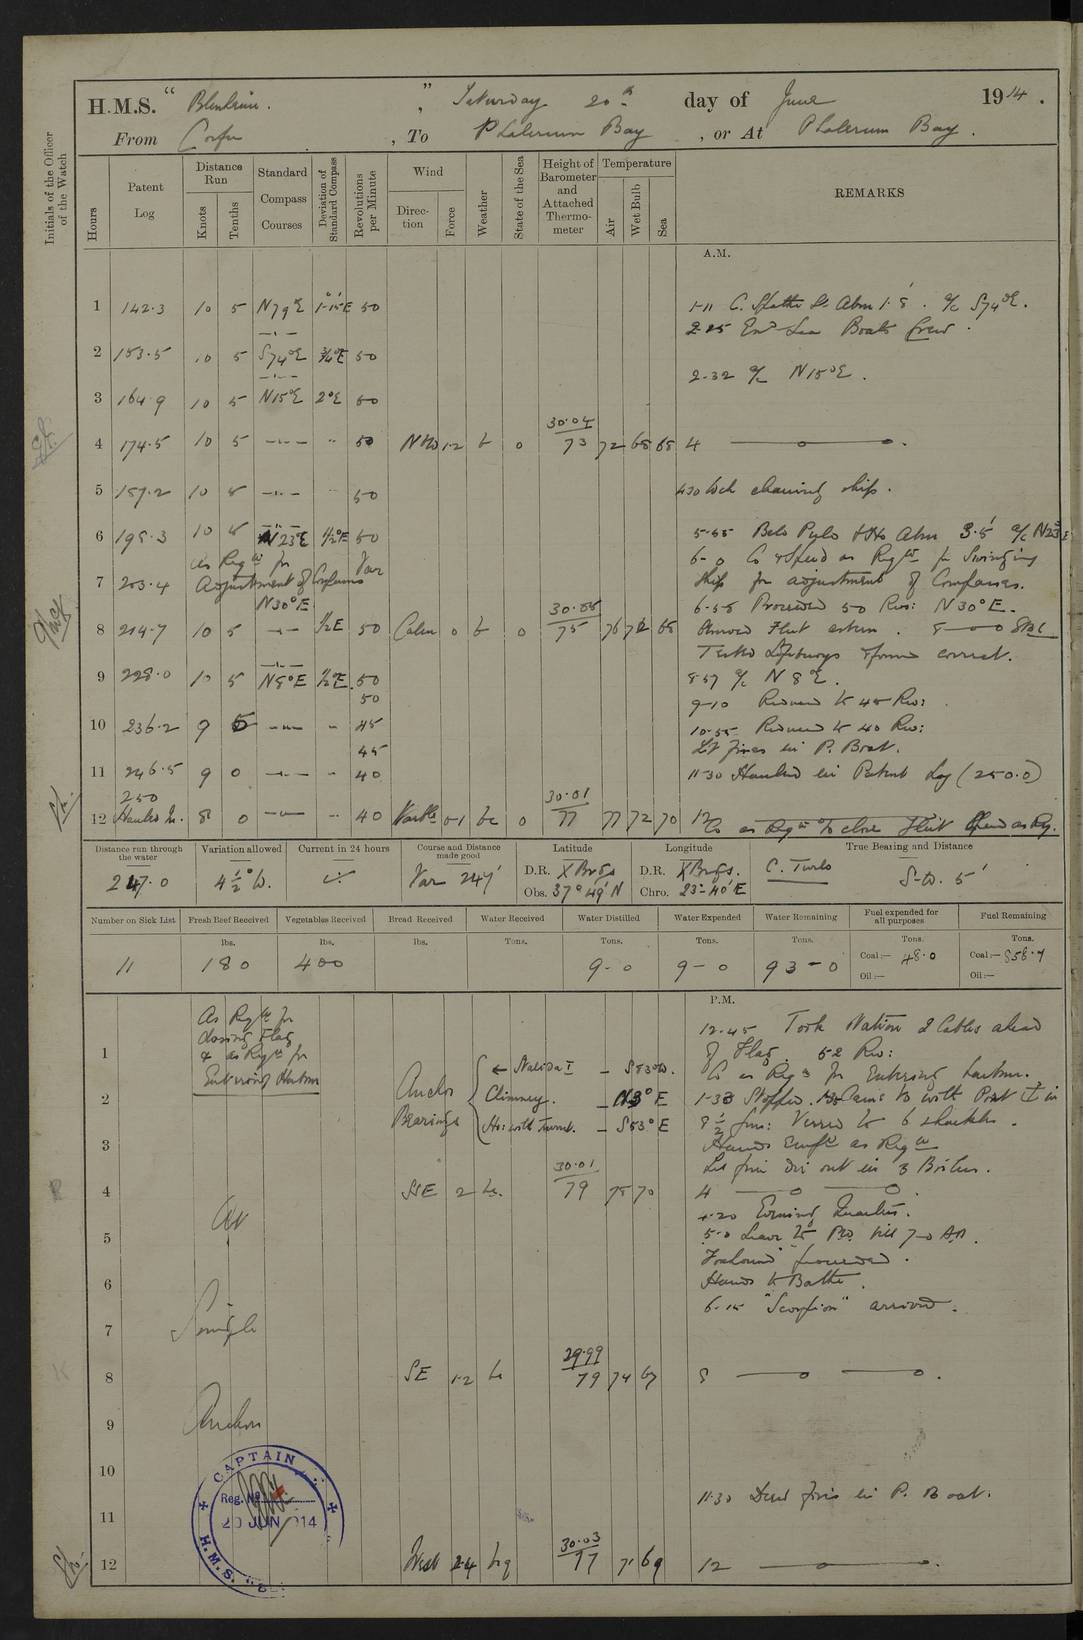 H.M.S. " Blenheim. ", Saturday 20th day of June 1914.
From Corfu, To Phalerum Bay, or At Phalerum Bay.
Initials of the Officer of the Watch
Hours
Patent Log
Distance Run
Knots
Tenths
Standard Compass Courses
Deviation of Standard Compass
Revolutions per Minute
Wind
Direction
Force
Weather
State of the Sea
Height of Barometer and Attached Thermometer
Temperature
Air
Wet Bulb
Sea
REMARKS
A.M.
1 142.3 10 5 N79°E 1°15'E 50 1-11 C. St. Abm 1.8'. a/c S74°E.
2-25 Exd Sea Boats Crew.
2 153.5 10 5 S74°E ¾°E 50
2-32 a/c N15°E.
3 164.9 10 5 N15°E 2°E 50
30.04
4 174.5 10 5 —"— " 50 NW 1-2 b 0 73 72 68 68 4
5 187.2 10 8 —"— " 50 4.30 Wch cleaning ship.
6 198.3 10 8 N23°E 1½°E 50 5-55 Abm 3.5' a/c N23°E
As Reqte for Var 6-0 Co & Speed as Reqte for Swinging
7 203.4 Adjustment of Compasses Ship for adjustment of Compasses.
N30°E 30.05 6-55 Proceeded 50 Rev: N30°E.
8 214.7 10 5 —"— ½E 50 Calm 0 b 0 75 76 72 68 Observed Fleet astern. 8
Tested Lifebuoys & found correct.
9 225.0 10 5 N8°E ½°E 50 8-57 a/c N8°E.
50 9-10 Reduced to 45 Rev:
10 236.2 9 5 —"— " 45 10-55 Reduced to 40 Rev:
45 Lt fires in P. Boat.
11 246.5 9 0 —"— " 40 11-30 Hauled in Patent Log (250.0)
250 30.01
12 Hauled In. 8 0 —"— " 40 Varble 0-1 bc 0 77 77 72 70 12 Co as Reqte to close Fleet Speed as Rq.
Distance run through the water
Variation allowed
Current in 24 hours
Course and Distance made good
Latitude
Longitude
True Bearing and Distance
247.0 4½° W. Var 247' D.R. X Brgs D.R. X Brgs. C. Turlo S-W. 5'
Obs. 37° 49' N Chro. 23° 40' E
Number on Sick List
Fresh Beef Received
Vegetables Received
Bread Received
Water Received
Water Distilled
Water Expended
Water Remaining
Fuel expended for all purposes
Fuel Remaining
lbs. lbs. lbs. Tons. Tons. Tons. Tons. Tons. Tons.
11 180 400 9-0 9-0 93-0 Coal:— 48.0 Coal:— 858.7
Oil:— Oil:—
P.M.
As Reqte for 12-45 Took Station 2 Cables ahead
closing Flag
1 & as Reqte for of Flag. 52 Rev:
Entering Harbour Station I — S83°W. Co as Reqte for Entering harbour.
2 Anchor Chimney. — N3°E 1-33 Stopped. Came to with Port in
Bearings Ho: with Turret. — S53°E 8½ fms: Veered to 6 shackles.
3 Hands Empd as Reqte
30.01 Let fires die out in 3 Boilers.
4 SSE 2 bc. 79 75 70 4
At 4-20 Evening Quarters.
5 5-0 Leave to till 7-0 AM.
"Foxhound" proceeded.
6 Hands to Bathe.
6-15 "Scorpion" arrived.
7 Single
29.99
8 SE 1-2 bc 79 74 67 8
9 Anchor
10
11 11.30 Drew fires in P. Boat.
30.03
12 West 2-4 bcq 77 71 69 12
CAPTAIN
Reg. No.
20 JUN 1914
H.M.S. "BL